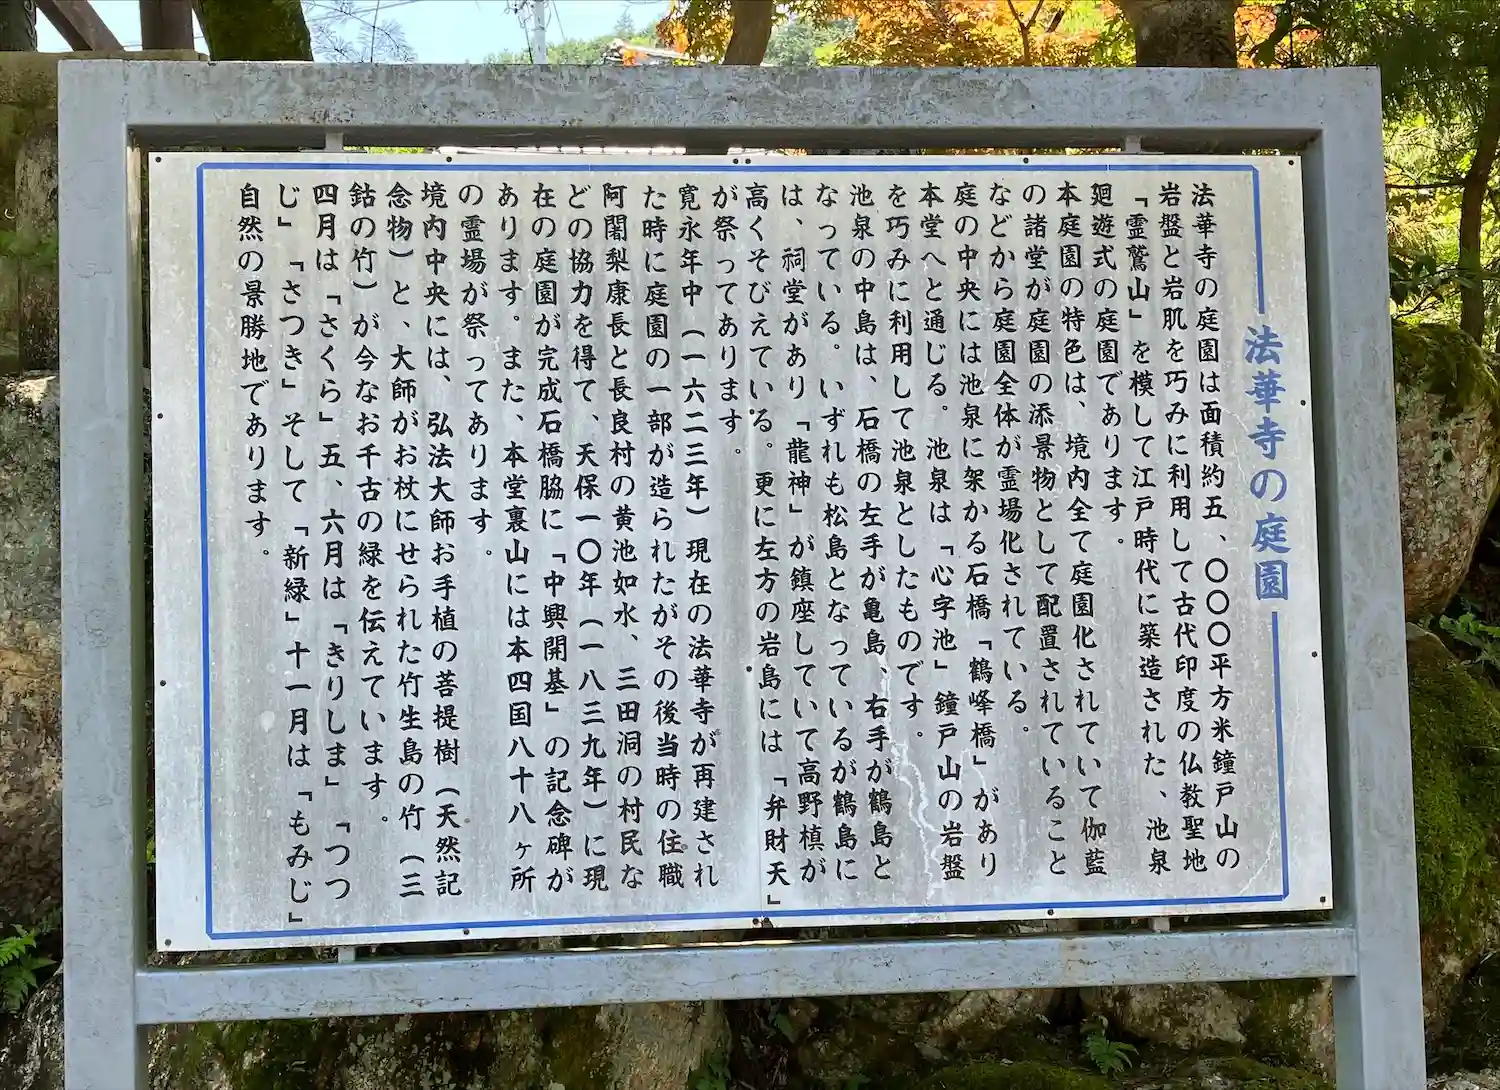 法華寺の庭園
法華寺の庭園は面積約五、〇〇〇平方米鐘戸山の
岩盤と岩肌を巧みに利用して古代印度の仏教聖地
「霊鷲山」を模して江戸時代に築造された、池泉
廻遊式の庭園であります。
本庭園の特色は、境内全て庭園化されていて伽藍
の諸堂が庭園の添景物として配置されていること
などから庭園全体が霊場化されている。
庭の中央には池泉に架かる石橋「鶴峰橋」があり
本堂へと通じる。池泉は「心字池」鐘戸山の岩盤
を巧みに利用して池泉としたものです。
池泉の中島は、石橋の左手が亀島、右手が鶴島と
なっている。いずれも松島となっているが鶴島に
は、祠堂があり「龍神」が鎮座していて高野槙が
高くそびえている。更に左方の岩島には「弁財天」
が祭ってあります。
寛永年中（一六二三年）現在の法華寺が再建され
た時に庭園の一部が造られたがその後当時の住職
阿闍梨康長と長良村の黄池如水、三田洞の村民な
どの協力を得て、天保一〇年（一八三九年）に現
在の庭園が完成石橋脇に「中興開基」の記念碑が
あります。また、本堂裏山には本四国八十八ヶ所
の霊場が祭ってあります。
境内中央には、弘法大師お手植の菩提樹（天然記
念物）と、大師がお杖にせられた竹生島の竹（三
鈷の竹）が今なお千古の緑を伝えています。
四月は「さくら」五、六月は「きりしま」「つつ
じ」「さつき」そして「新緑」十一月は「もみじ」
自然の景勝地であります。